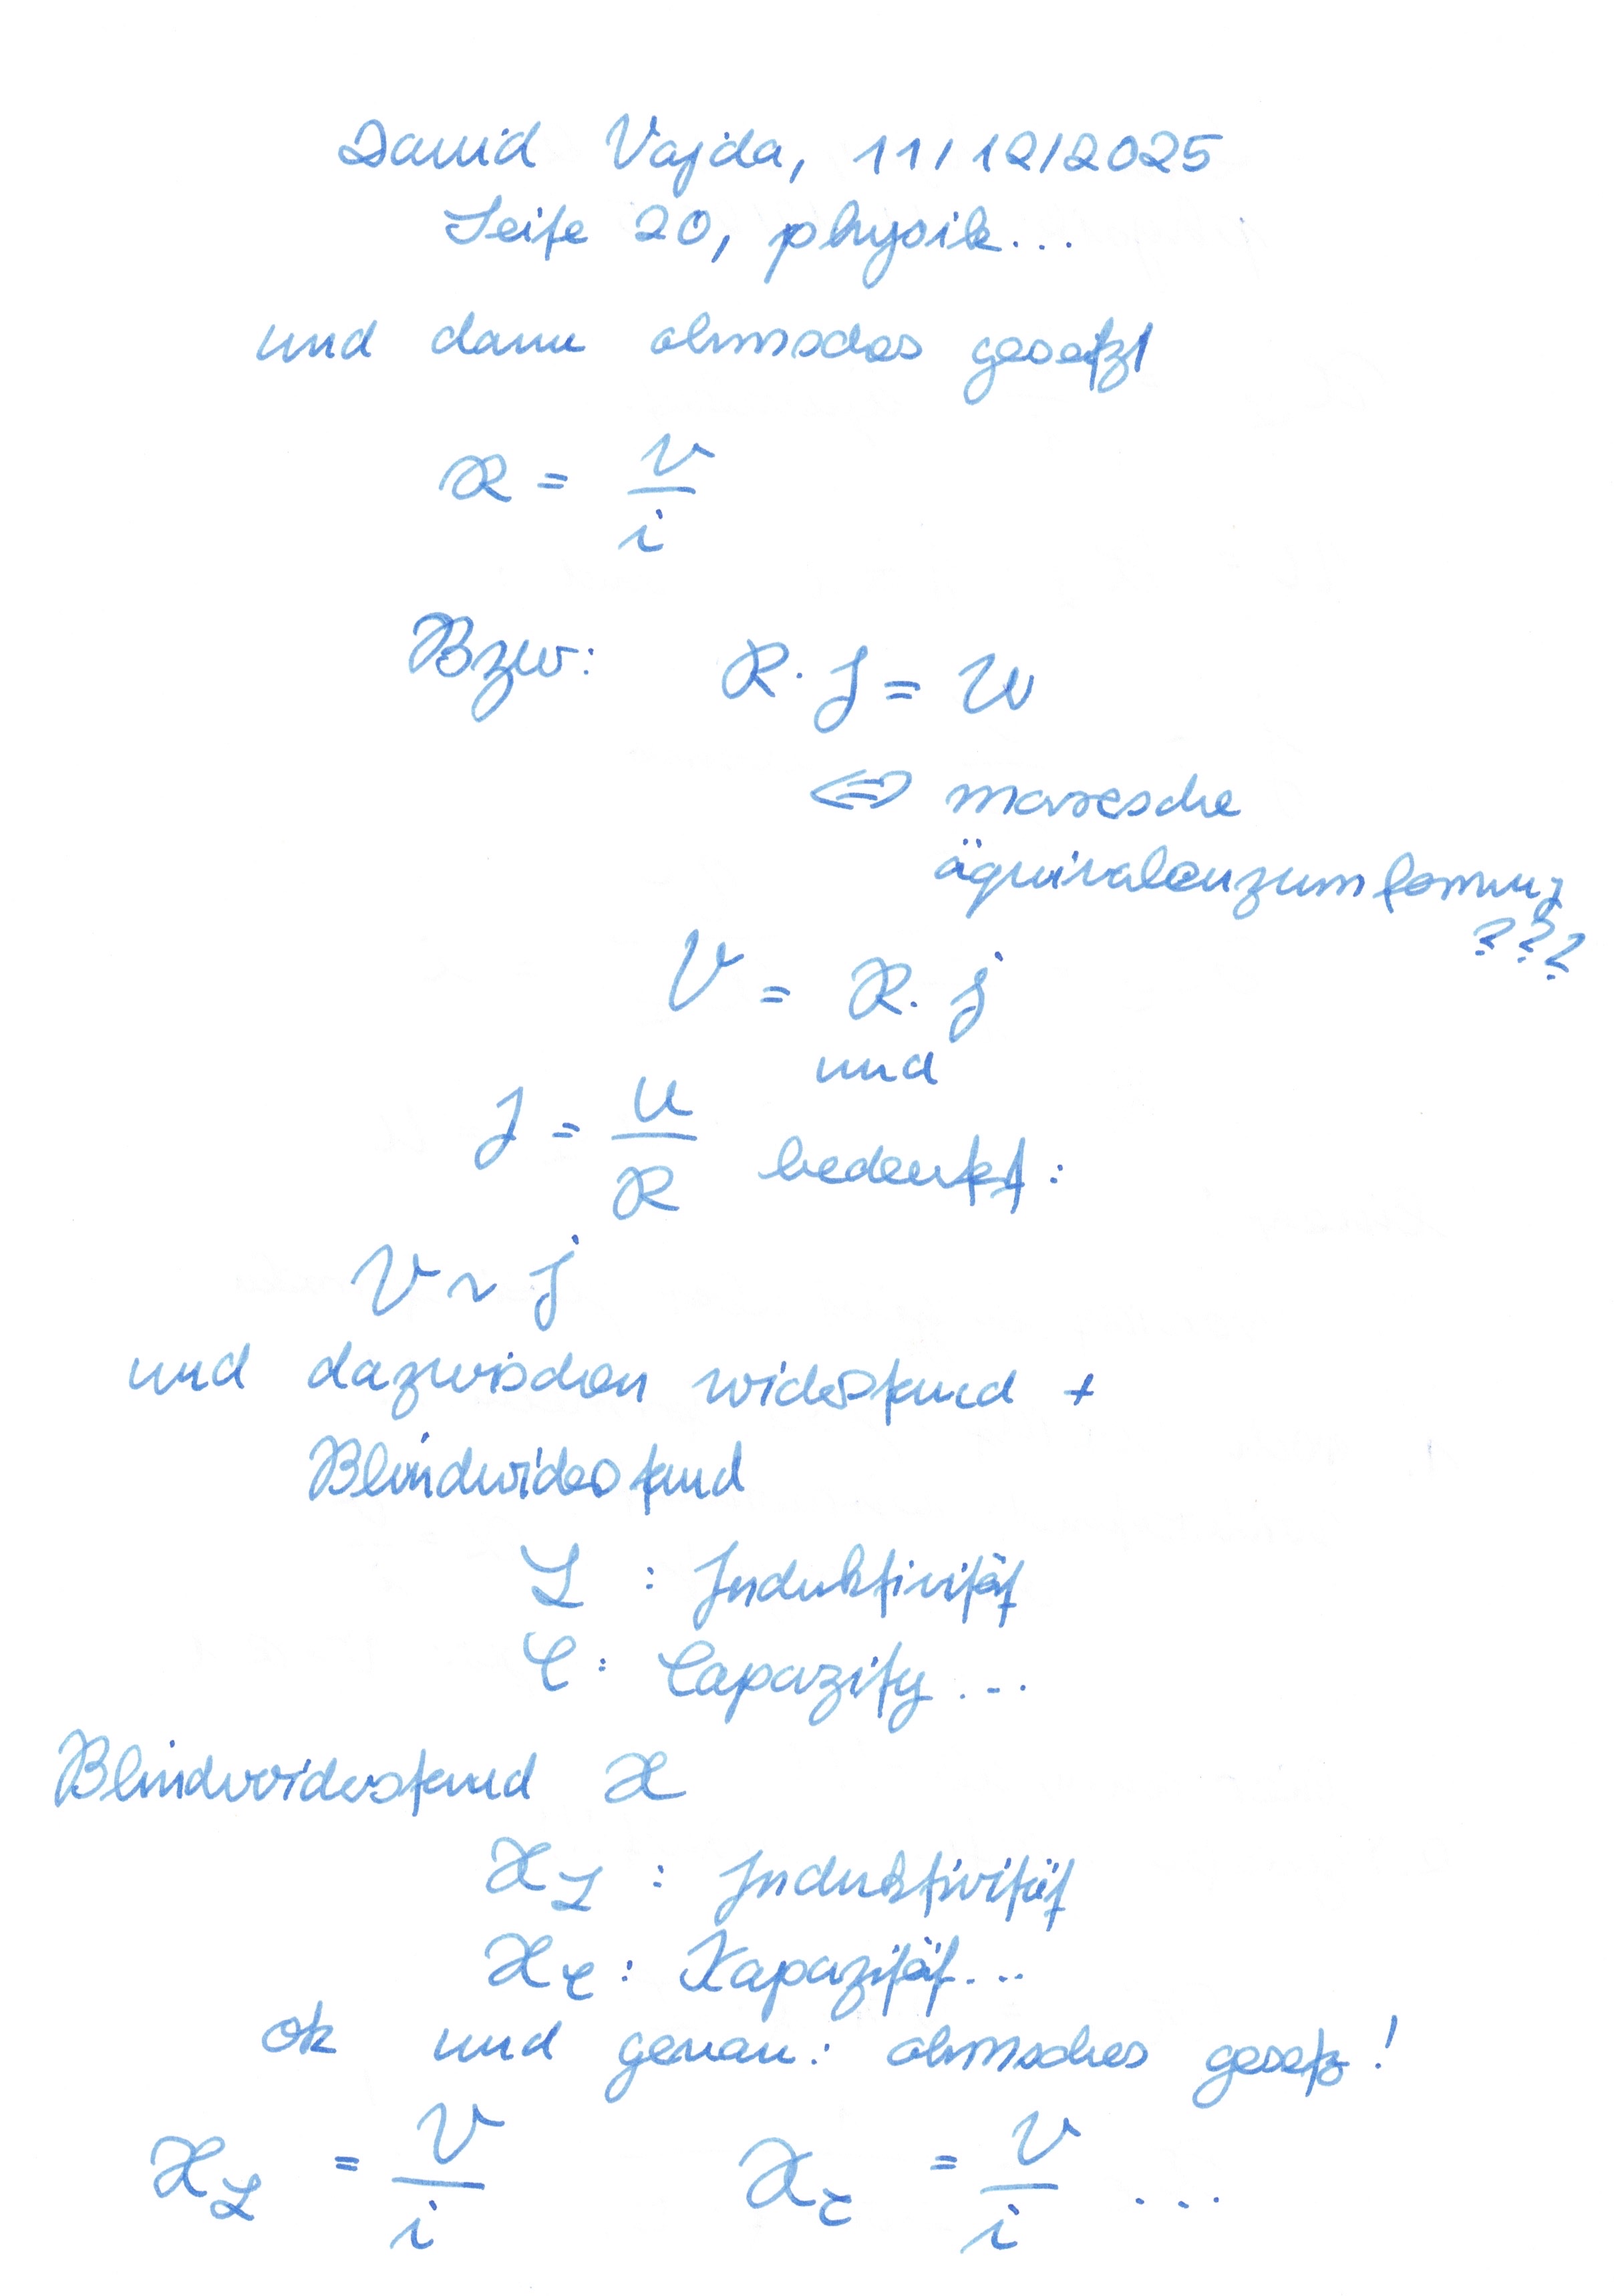 David Vajda, 11/12/2025
Seite 20, physik...
und dann ohmsches gesetzt
R = V / i
Bzw: R · J = U
⇔ marxsche
äquivalenzumformung
???
V = R · j
und
J = U / R bedenkt:
V ~ j
und dazwischen widerstand +
Blindwiderstand
L : Induktivität
C : Capazity...
Blindwiderstand X
X_L : Induktivität
X_C : Kapazität...
ok und genau: ohmsches gesetz!
X_L = V / i X_C = V / i ...